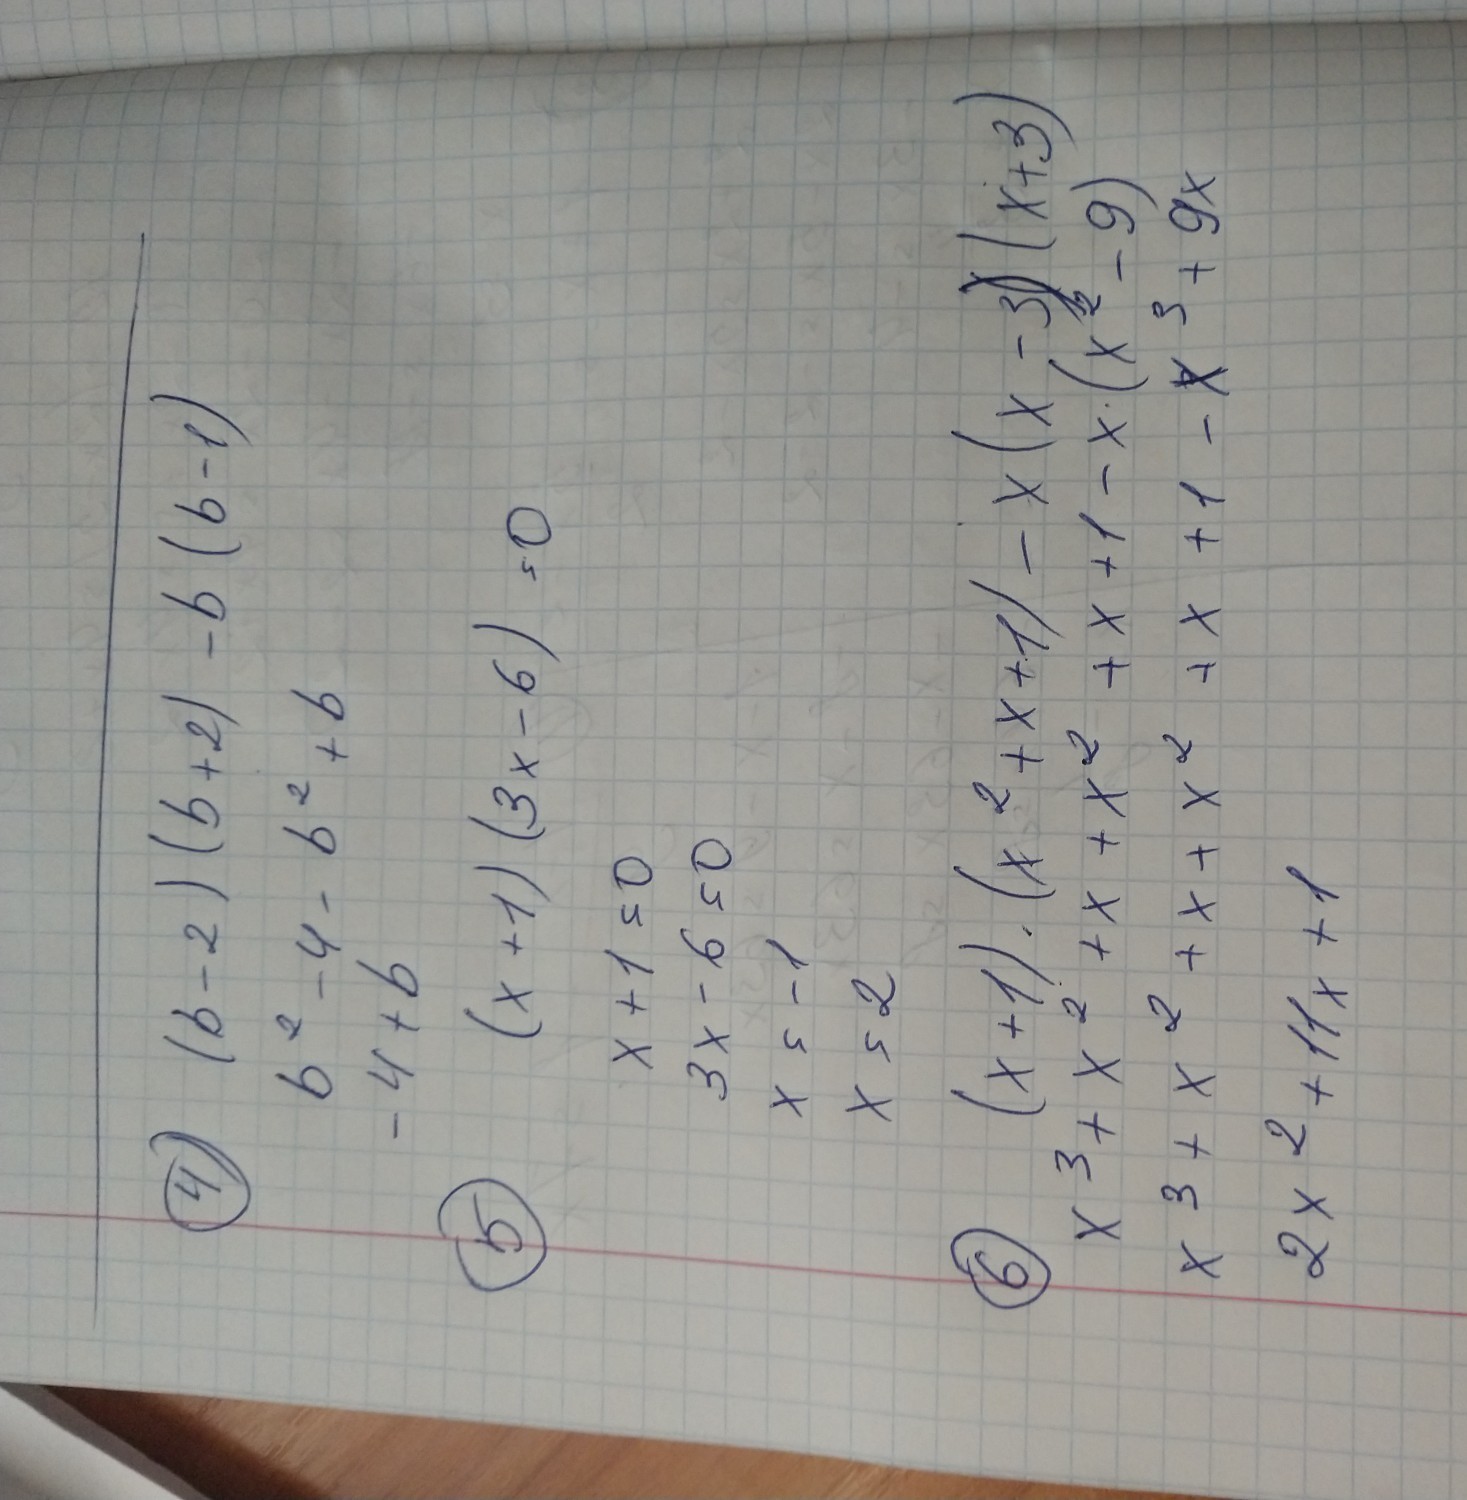 ④ (b-2)(b+2)-b(b-1)
b²-4-b²+b
-4+b
⑤ (x+1)(3x-6)=0
x+1=0
3x-6=0
x=-1
x=2
⑥ (x+1)·(x²+x+1)-x(x-3)(x+3)
x³+x²+x+x²+x+1-x·(x²-9)
x³+x²+x+x²+x+1-x³+9x
2x²+11x+1